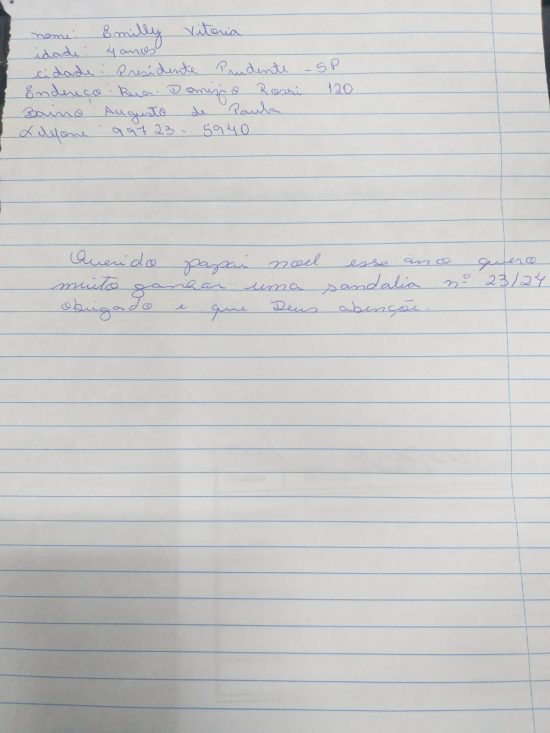 nome: Emilly Vitoria
idade: 4 anos
cidade: Presidente Prudente - SP
Endereço: Rua: Domizio Rossi 120
Bairro: Augusto de Paula
telefone: 99723-5940
Querido papai noel esse ano quero
muito ganhar uma sandalia nº 23/24
obrigado e que Deus abençõe.